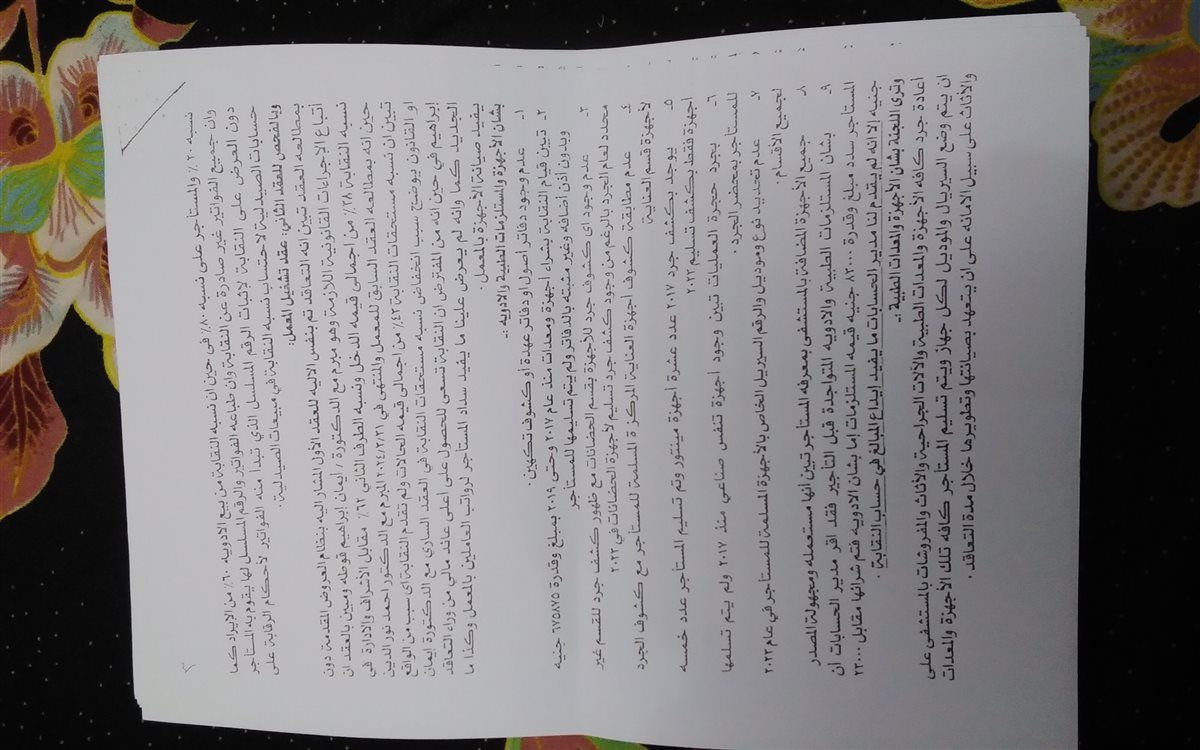 ٣
نسبه ٢٠٪ والمستأجر على نسبه ٨٠٪ في حين ان نسبه النقابة من بيع الادويه ٦٠٪ من الإيراد كما
وان جميع الفواتير غير صادرة عن النقابة وان طباعه الفواتير والرقم المسلسل لها يقوم به المستأجر
دون العرض على النقابة لإثبات الرقم المسلسل الذي تبدأ منه الفواتير لأحكام الرقابة على
حسابات الصيدلية لاحتساب نسبه النقابة في مبيعات الصيدلية.
وبالفحص للعقد الثاني: عقد تشغيل المعمل:
بمطالعه العقد تبين انه التعاقد تم بنفس الاليه للعقد الأول المشار اليه بنظام العروض المقدمة دون
أتباع الإجراءات القانونية اللازمة وهو مبرم مع الدكتورة / إيمان إبراهيم فوطه ومبين بالعقد ان
نسبه النقابة ٣٨٪ من اجمالي قيمه الدخل ونسبه الطرف الثاني ٦٢٪ مقابل الأشراف والادارة في
حين انه بمطالعه العقد السابق للمعمل والمنتهى في المبرم مع الدكتور احمد نور الدين
تبين ان نسبه مستحقات النقابة ٤٣٪ من اجمالي قيمه الحالات ولم تقدم النقابة اى سبب من الواقع
او القانون يوضح سبب انخفاض نسبه مستحقات النقابة في العقد الساري مع الدكتورة إيمان
إبراهيم في حين انه من المفترض ان النقابة تسعى للحصول على أعلى عائد مالي من وراء التعاقد
الجديد كما وانه لم يعرض علينا ما يفيد سداد المستأجر لرواتب العاملين بالمعمل وكذا ما
يفيد صيانة الأجهزة بالمعمل.
بشان الأجهزة والمستلزمات الطبية والادويه :-
١- عدم وجود دفاتر اصول او دفاتر عهدة او كشوف تكهين.
٢- تبين قيام النقابة بشراء أجهزة ومعدات منذ عام ٢٠١٧ وحتى ٢٠١٩ بمبلغ وقدرة ٦٧٥٨٧٥ جنيه
وبدون أذن أضافه وغير مثبته بالدفاتر ولم يتم تسليمها للمستأجر
٣- عدم وجود اى كشوف جرد للأجهزة بقسم الحضانات مع ظهور كشف جرد للقسم غير
محدد لعام الجرد بالرغم من وجود كشف جرد تسليم لأجهزة الحضانات في ٢٠٢٢
٤- عدم مطابقة كشوف أجهزة العناية المركزة المسلمة للمستأجر مع كشوف الجرد
لأجهزة قسم العناية
٥- يوجد بكشف جرد ٢٠١٧ عدد عشرة أجهزة مينتور وتم تسليم المستأجر عدد خمسه
أجهزة فقط بكشف تسليم ٢٠٢٢
٦- بجرد حجرة العمليات تبين وجود أجهزة تنفس صناعي منذ ٢٠١٧ ولم يتم تسلمها
للمستأجر بمحضر الجرد.
٧- عدم تحديد نوع وموديل والرقم السيريل الخاص بالأجهزة المسلمة للمستأجر في عام ٢٠٢٢
لجميع الأقسام.
٨- جميع الأجهزة المضافة بالمستشفى بمعرفه المستأجر تبين أنها مستعمله ومجهولة المصدر
٩- بشان المستلزمات الطبية والادويه المتواجدة قبل التأجير فقد اقر مدير الحسابات أن
المستأجر سدد مبلغ وقدرة ٨٢٠٠٠ جنيه قيمه المستلزمات إما بشان الادويه فتم شرائها مقابل ٢٢٠٠٠
جنيه إلا انه لم يقدم لنا مدير الحسابات ما يفيد إيداع المبالغ في حساب النقابة .
وترى اللجنة بشان الأجهزة والمعدات الطبية :-
أعادة جرد كافه الأجهزة والمعدات الطبية والآلات الجراحية والأثاث والمفروشات بالمستشفى على
ان يتم وضع السيريال والموديل لكل جهاز ويتم تسليم المستأجر كافه تلك الأجهزة والمعدات
والأثاث على سبيل الامانه على ان يتعهد بصيانتها وتطويرها خلال مدة التعاقد .